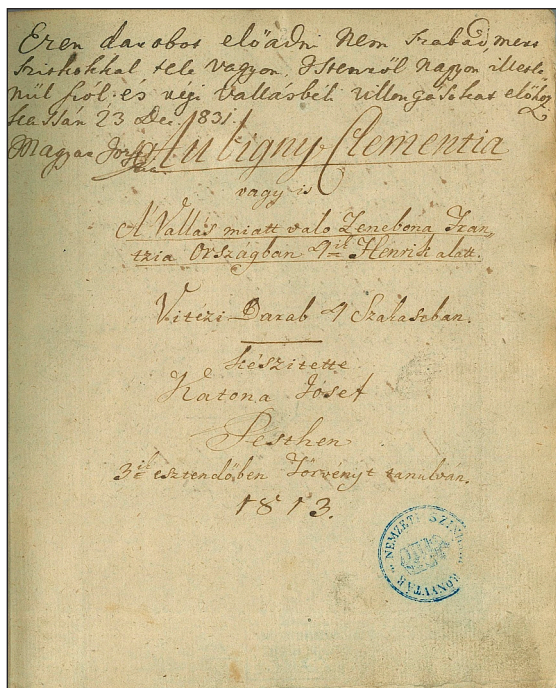 Ezen darabot előadni nem szabad, mert
szitkokkal tele vagyon, Istenről nagyon illetle
nül szól és régi vallásbéli villongásokat előhoz
Kassán 23 Dec. 1831.
Magyar József
Aubigny Clementia
vagy is
A' Vallás miatt való Zenebona Fran,
tzia Országban 4ik Henrik alatt.
Vitézi Darab 4 Szakaszban.
készitette
Katona Jósef
Pesthen
3ik esztendőben Törvényt tanulván.
1813.
NEMZETI SZINH
KÖNYVTÁR